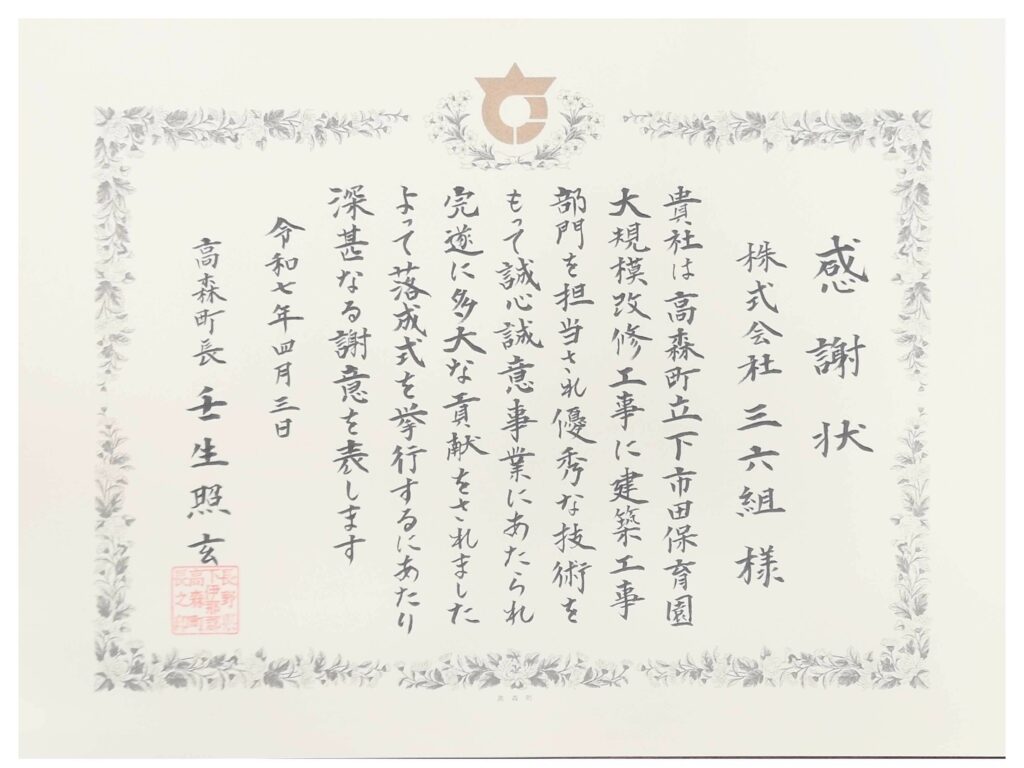 感謝状
株式会社三六組様
貴社は高森町立下市田保育園
大規模改修工事に建築工事
部門を担当され優秀な技術を
もって誠心誠意事業にあたられ
完遂に多大な貢献をされました
よって落成式を挙行するにあたり
深甚なる謝意を表します
令和七年四月三日
高森町長 壬生照玄
長野県
下伊那郡
高森町
長之印